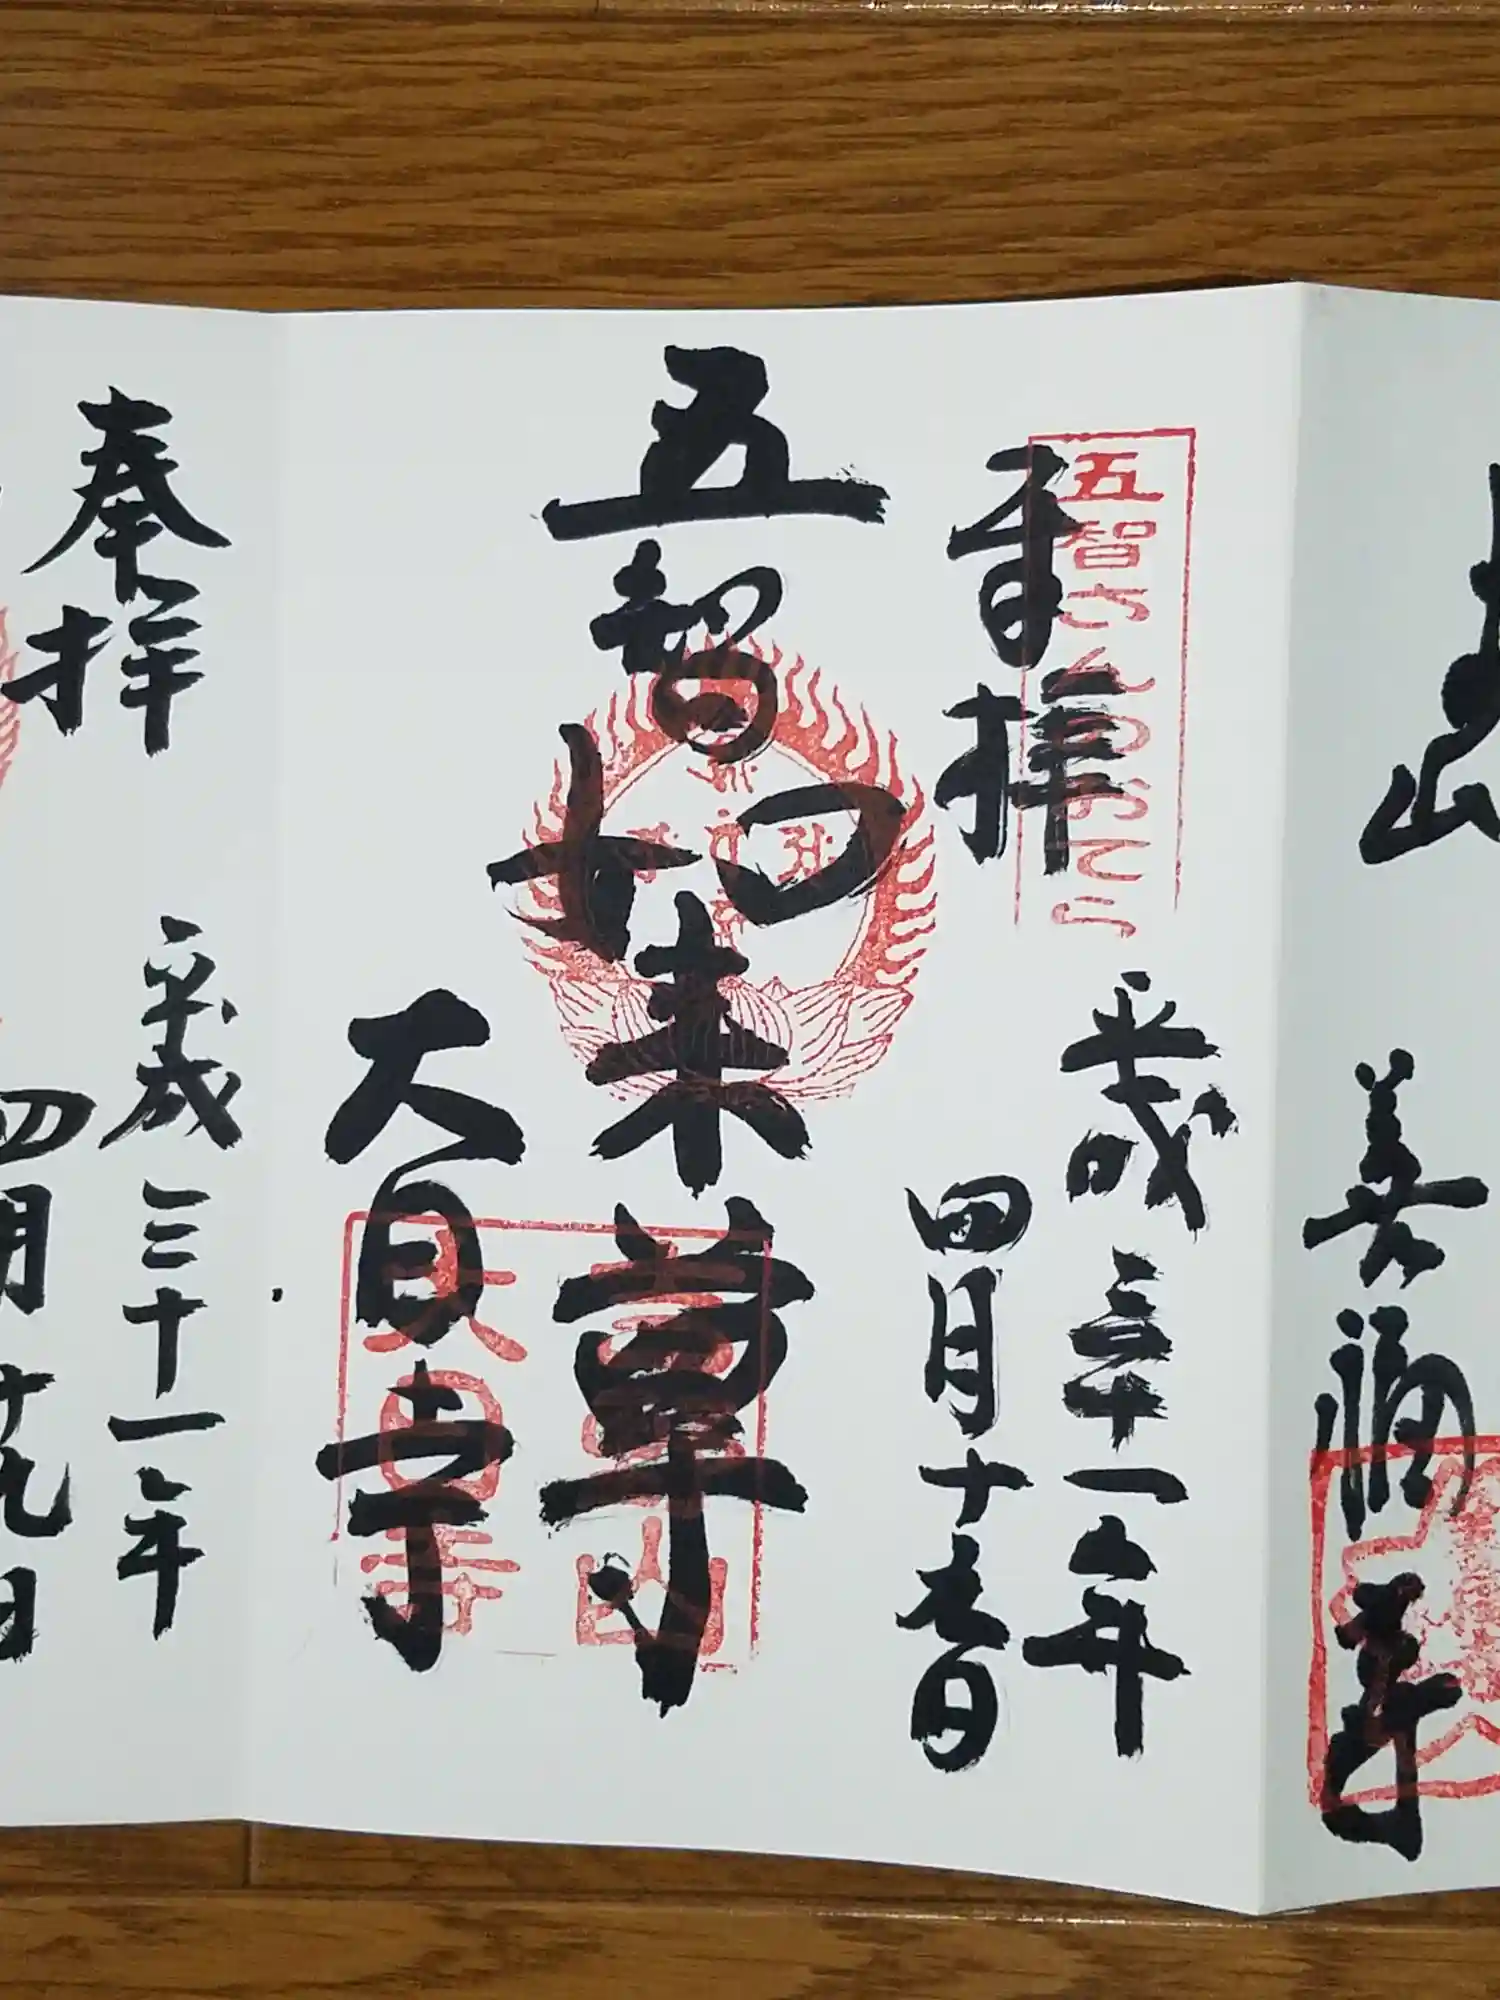 山
五智さんのおてら
拝
平成三十一年
四月十
五智如来尊
大日寺
大日寺
奉拝
平成三十一年
四月廿九日